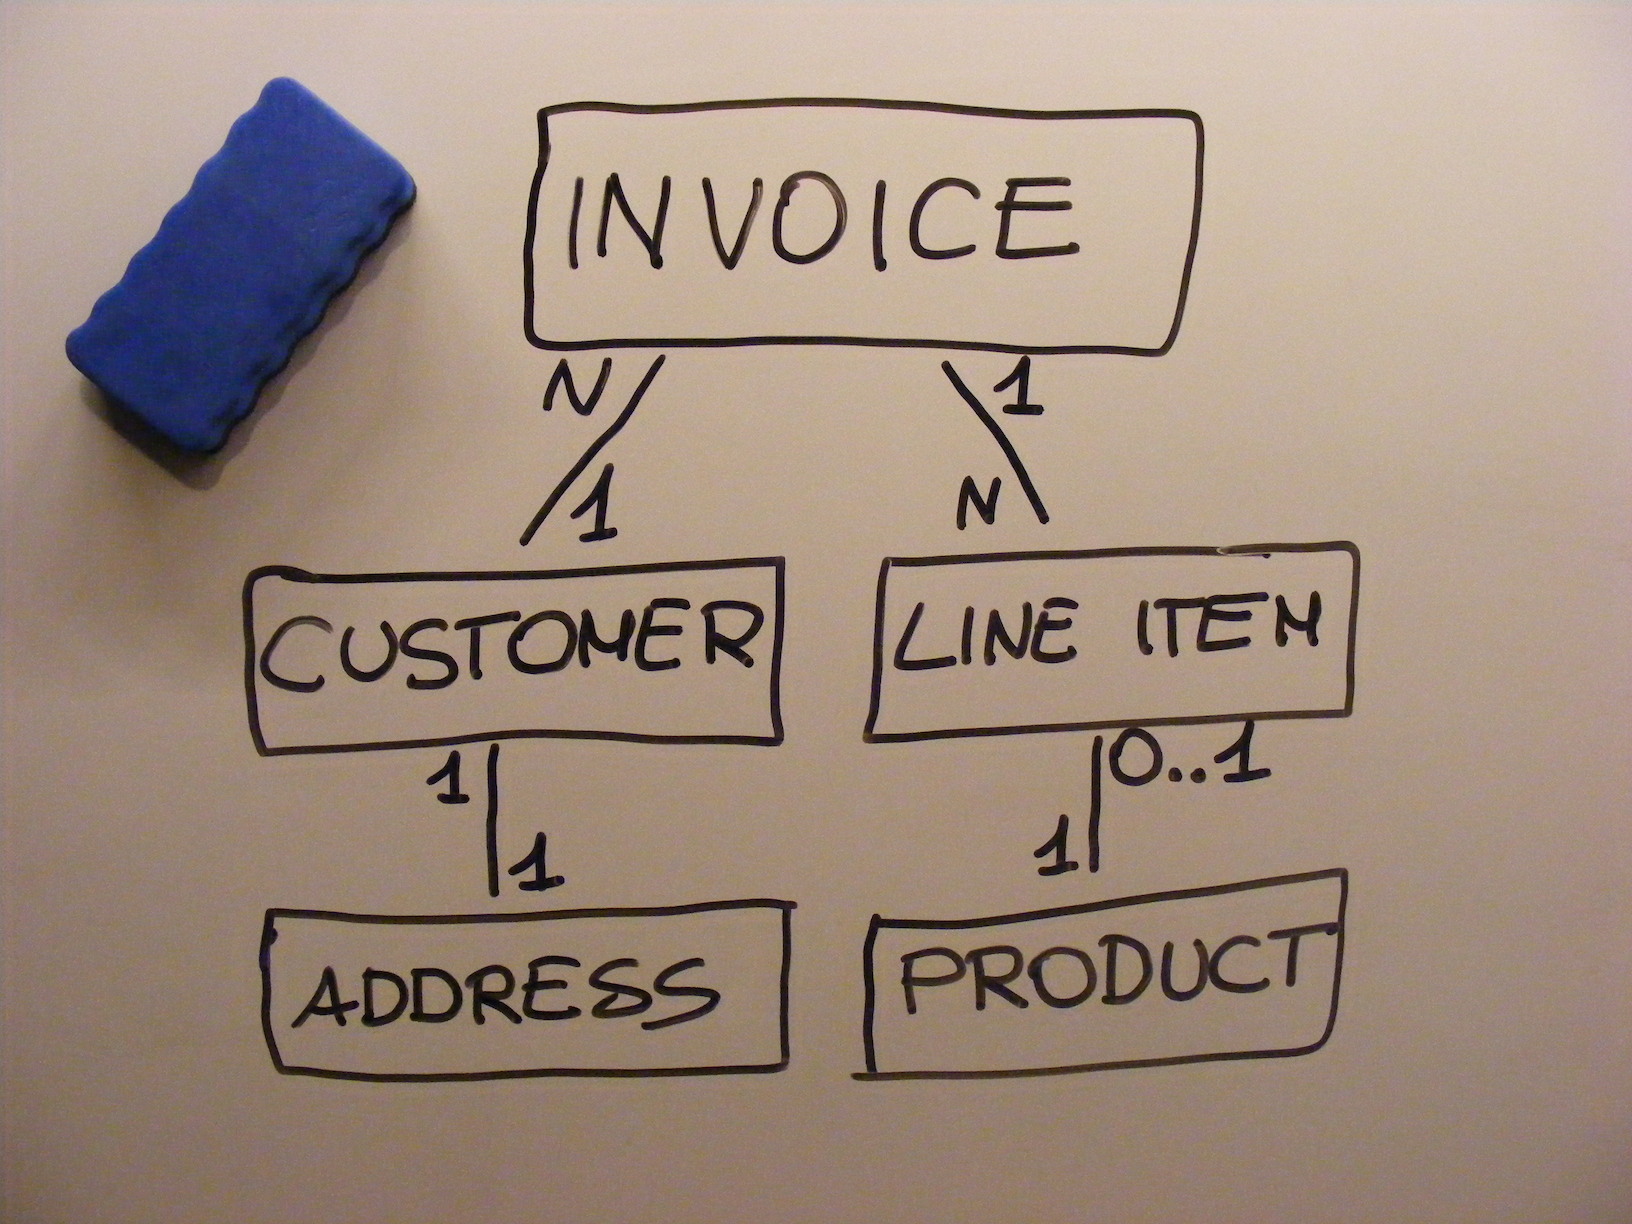 INVOICE
N 1
1 N
CUSTOMER LINE ITEM
1 0..1
1 1
ADDRESS PRODUCT